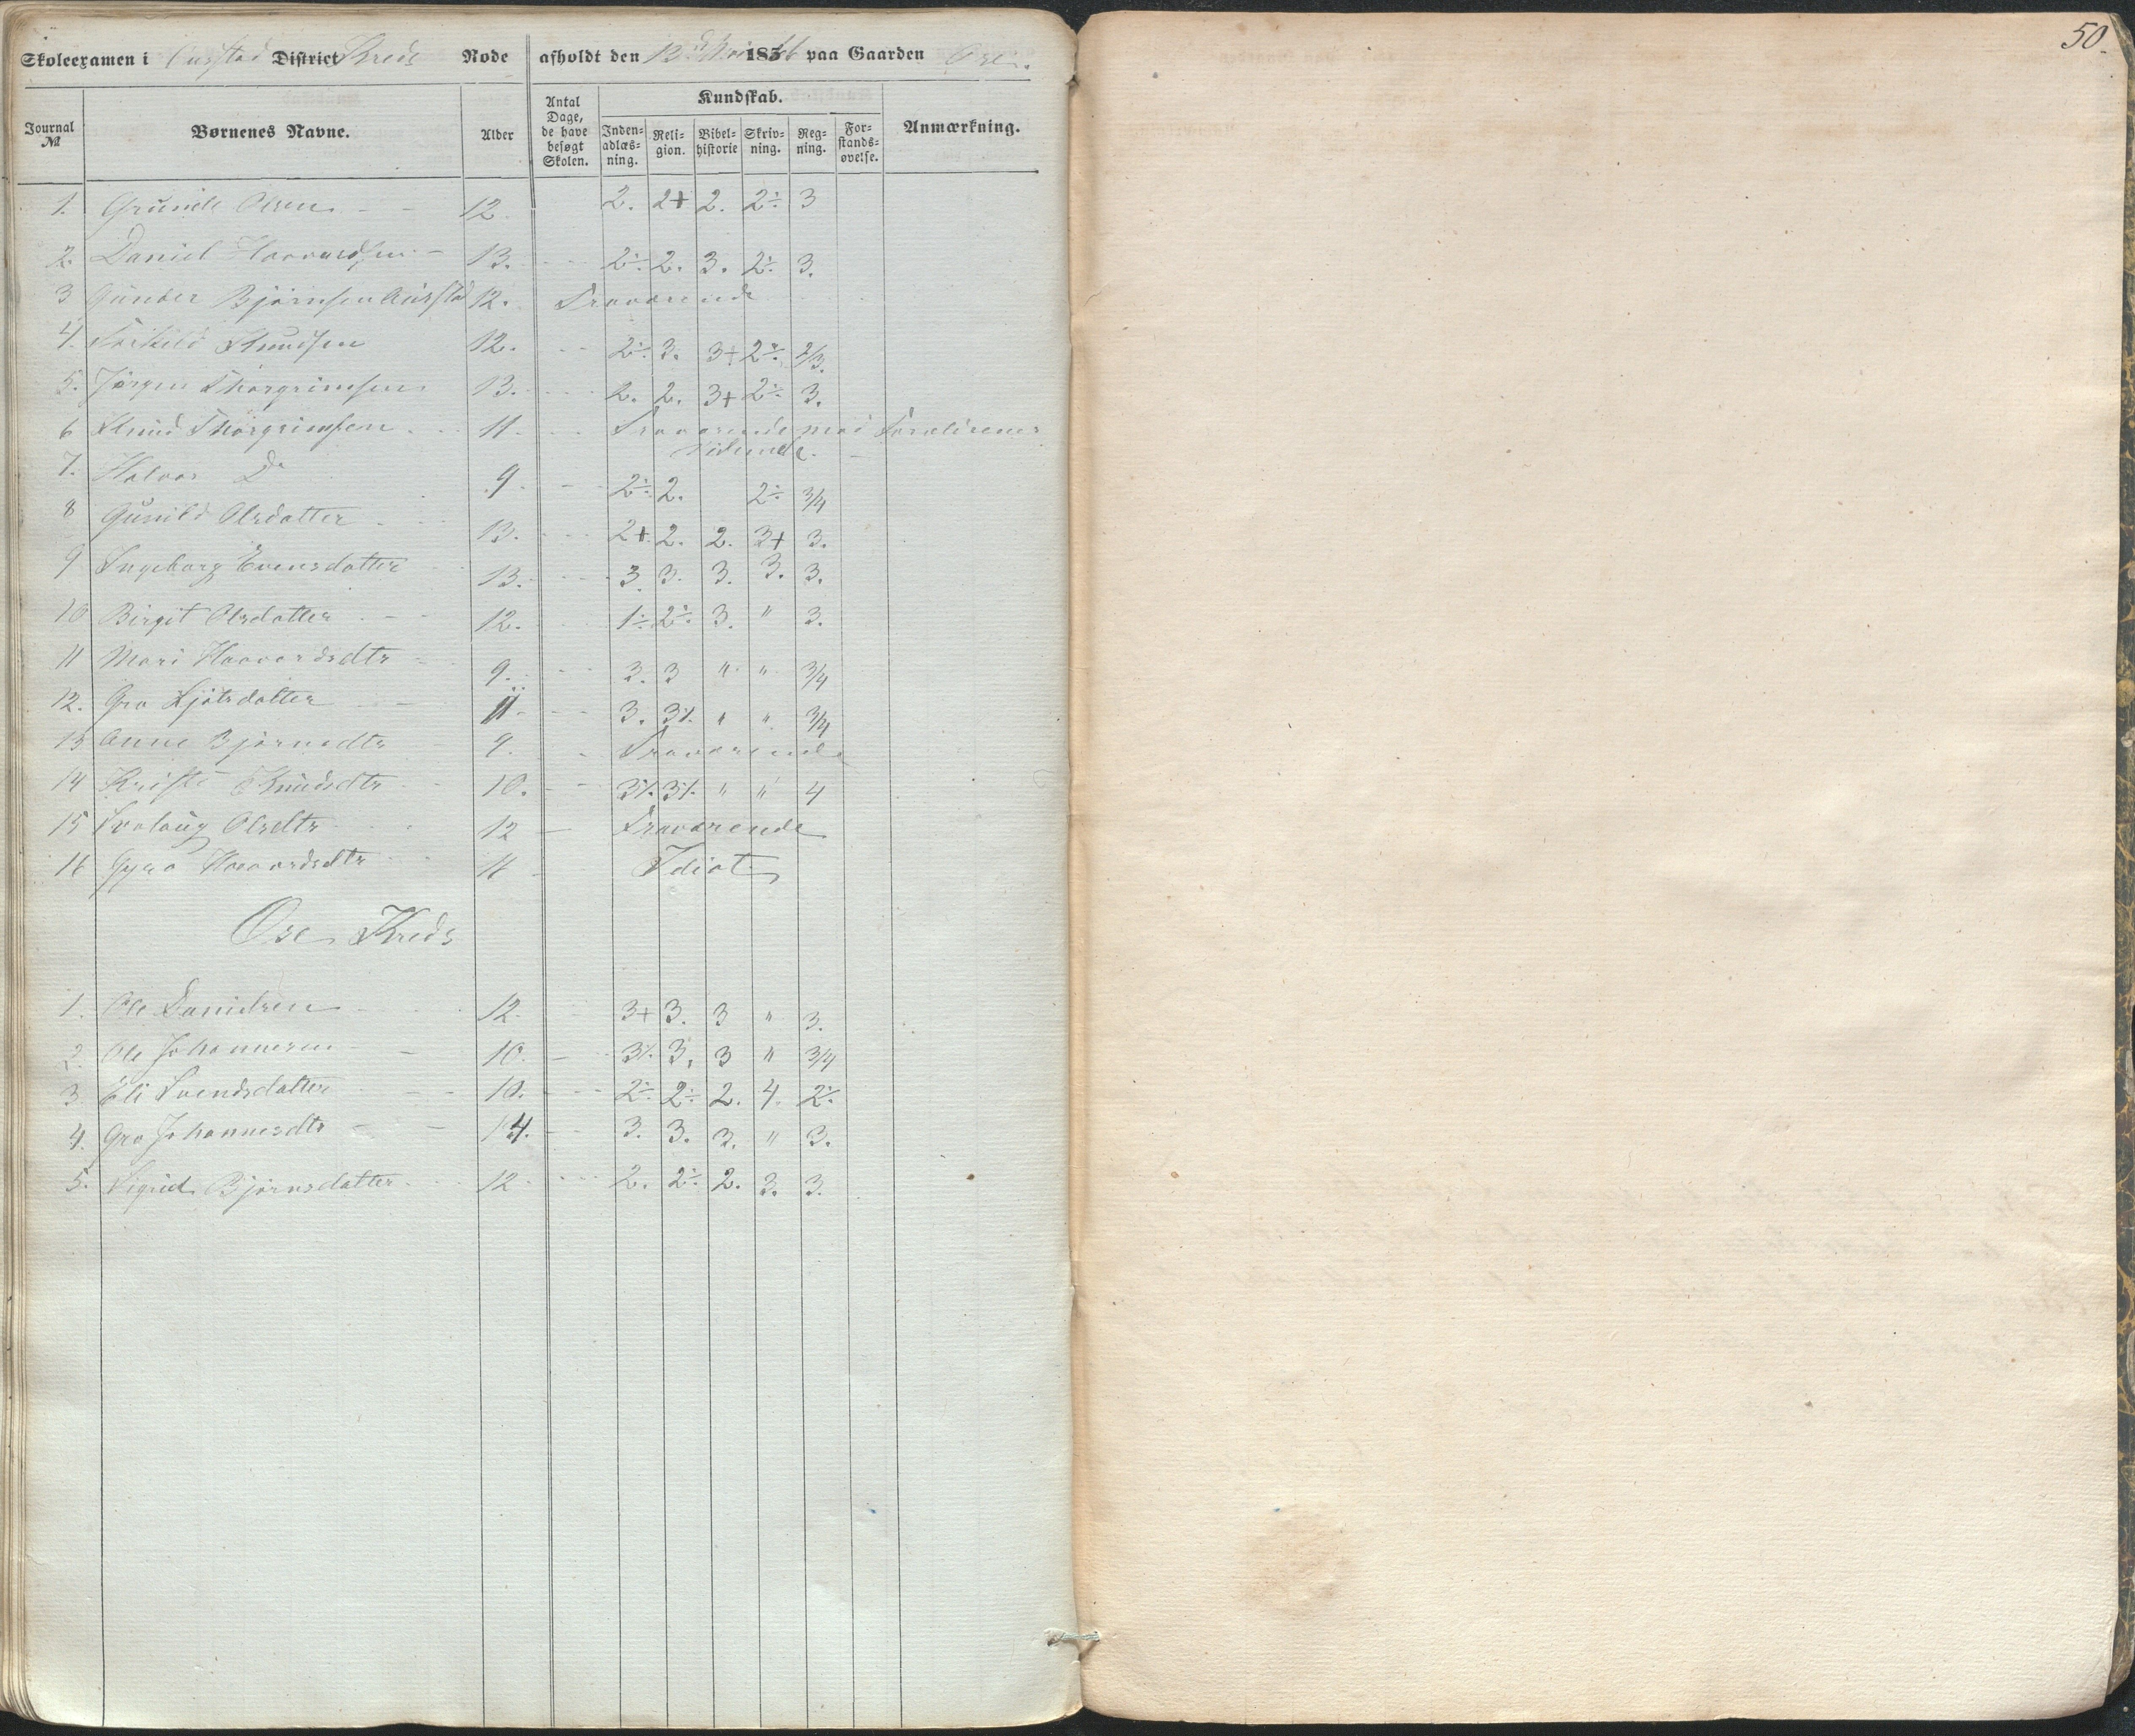 50.
Skoleexamen i Austad District Kreds Rode afholdt den 13 185 paa Gaarden Ose.
Journal № Børnenes Navne. Alder Antal Dage, de have besøgt Skolen. Kundskab. Inden-adlæs-ning. Reli-gion. Bibel-historie Skriv-ning. Reg-ning. For-stands-øvelse. Anmærkning.
1. Gunnile Olsen 12. 2. 2+ 2. 2÷ 3
2. Daniel Haavardsen 13. 2÷ 2. 3. 2÷ 3.
3 Gunder Bjørnsen Austad 12. Fraværende
4. Torkild Knudsen 12. 2÷ 3. 3+ 2÷ 2/3.
5. Jørgen Thorgrimsen 13. 2. 2. 3+ 2÷ 3.
6 Knud Thorgrimsen 11. Fraværende mod Forældrenes
Vidende.
7. Halvor Do 9. 2÷ 2. 2÷ 3/4
8 Gunild Olsdatter 13. 2+ 2. 2. 3+ 3.
9 Ingeborg Evensdatter 13. 3. 3. 3. 3. 3.
10 Birgit Olsdatter 12. 1÷ 2÷ 3. " 3.
11 Mari Haavordsdtr 9. 3. 3 " " 3/4
12. Gro Kjøtsdatter 11. 3. 3÷ " " 3/4
13 Anne Bjørnsdtr 9. Fraværende
14 Kristi Knudsdtr 10. 3÷ 3÷ " " 4
15 Svalaug Olsdtr 12 Fraværende
16 Gyro Haavordsdtr 11 Idiot
Ose Kreds
1. Ole Danielsen 12. 3+ 3. 3 " 3.
2. Ole Johannesen 10. 3÷ 3. 3 " 3/4
3 Eli Svendsdatter 10. 2÷ 2÷ 2. 4. 2÷
4. Gro Johannesdtr 14. 3. 3. 3. " 3.
5. Sigrid Bjørnsdatter 12 2. 2÷ 2. 3. 3.